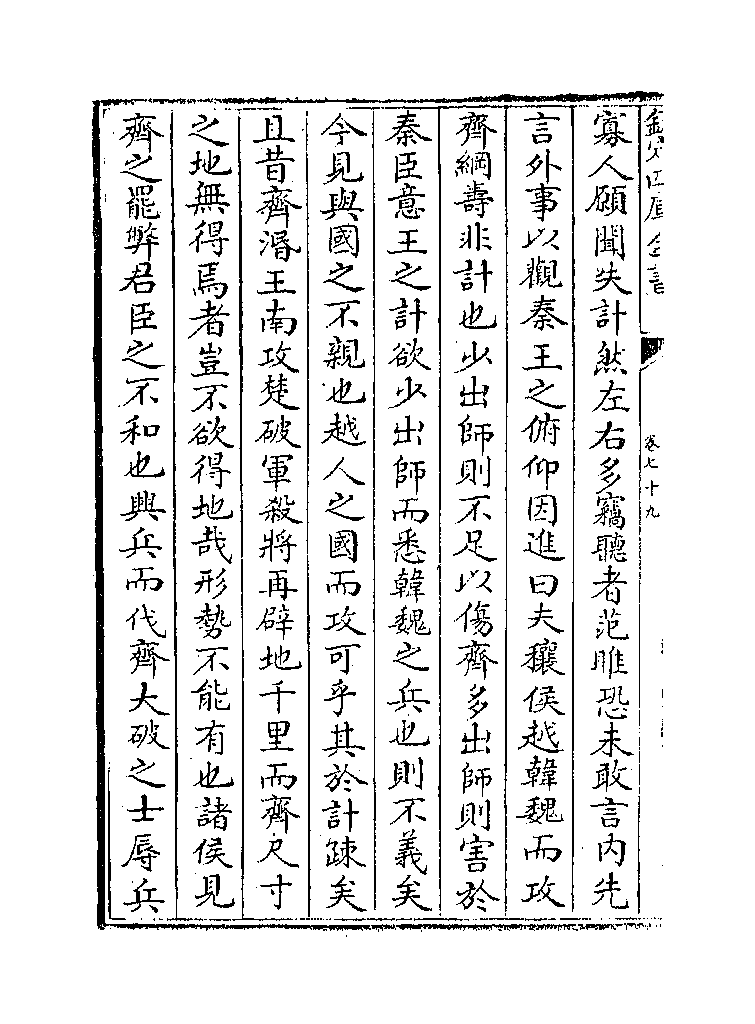 欽定四庫全書
卷七十九
寡人願聞失計然左右多竊聽者范雎恐未敢言内先
言外事以觀秦王之俯仰因進曰夫穰侯越韓魏而攻
齊綱壽非計也少出師則不足以傷齊多出師則害於
秦臣意王之計欲少出師而悉韓魏之兵也則不義矣
今見與國之不親也越人之國而攻可乎其於計疎矣
且昔齊湣王南攻楚破軍殺將再辟地千里而齊尺寸
之地無得焉者豈不欲得地哉形勢不能有也諸侯見
齊之罷弊君臣之不和也興兵而伐齊大破之士辱兵